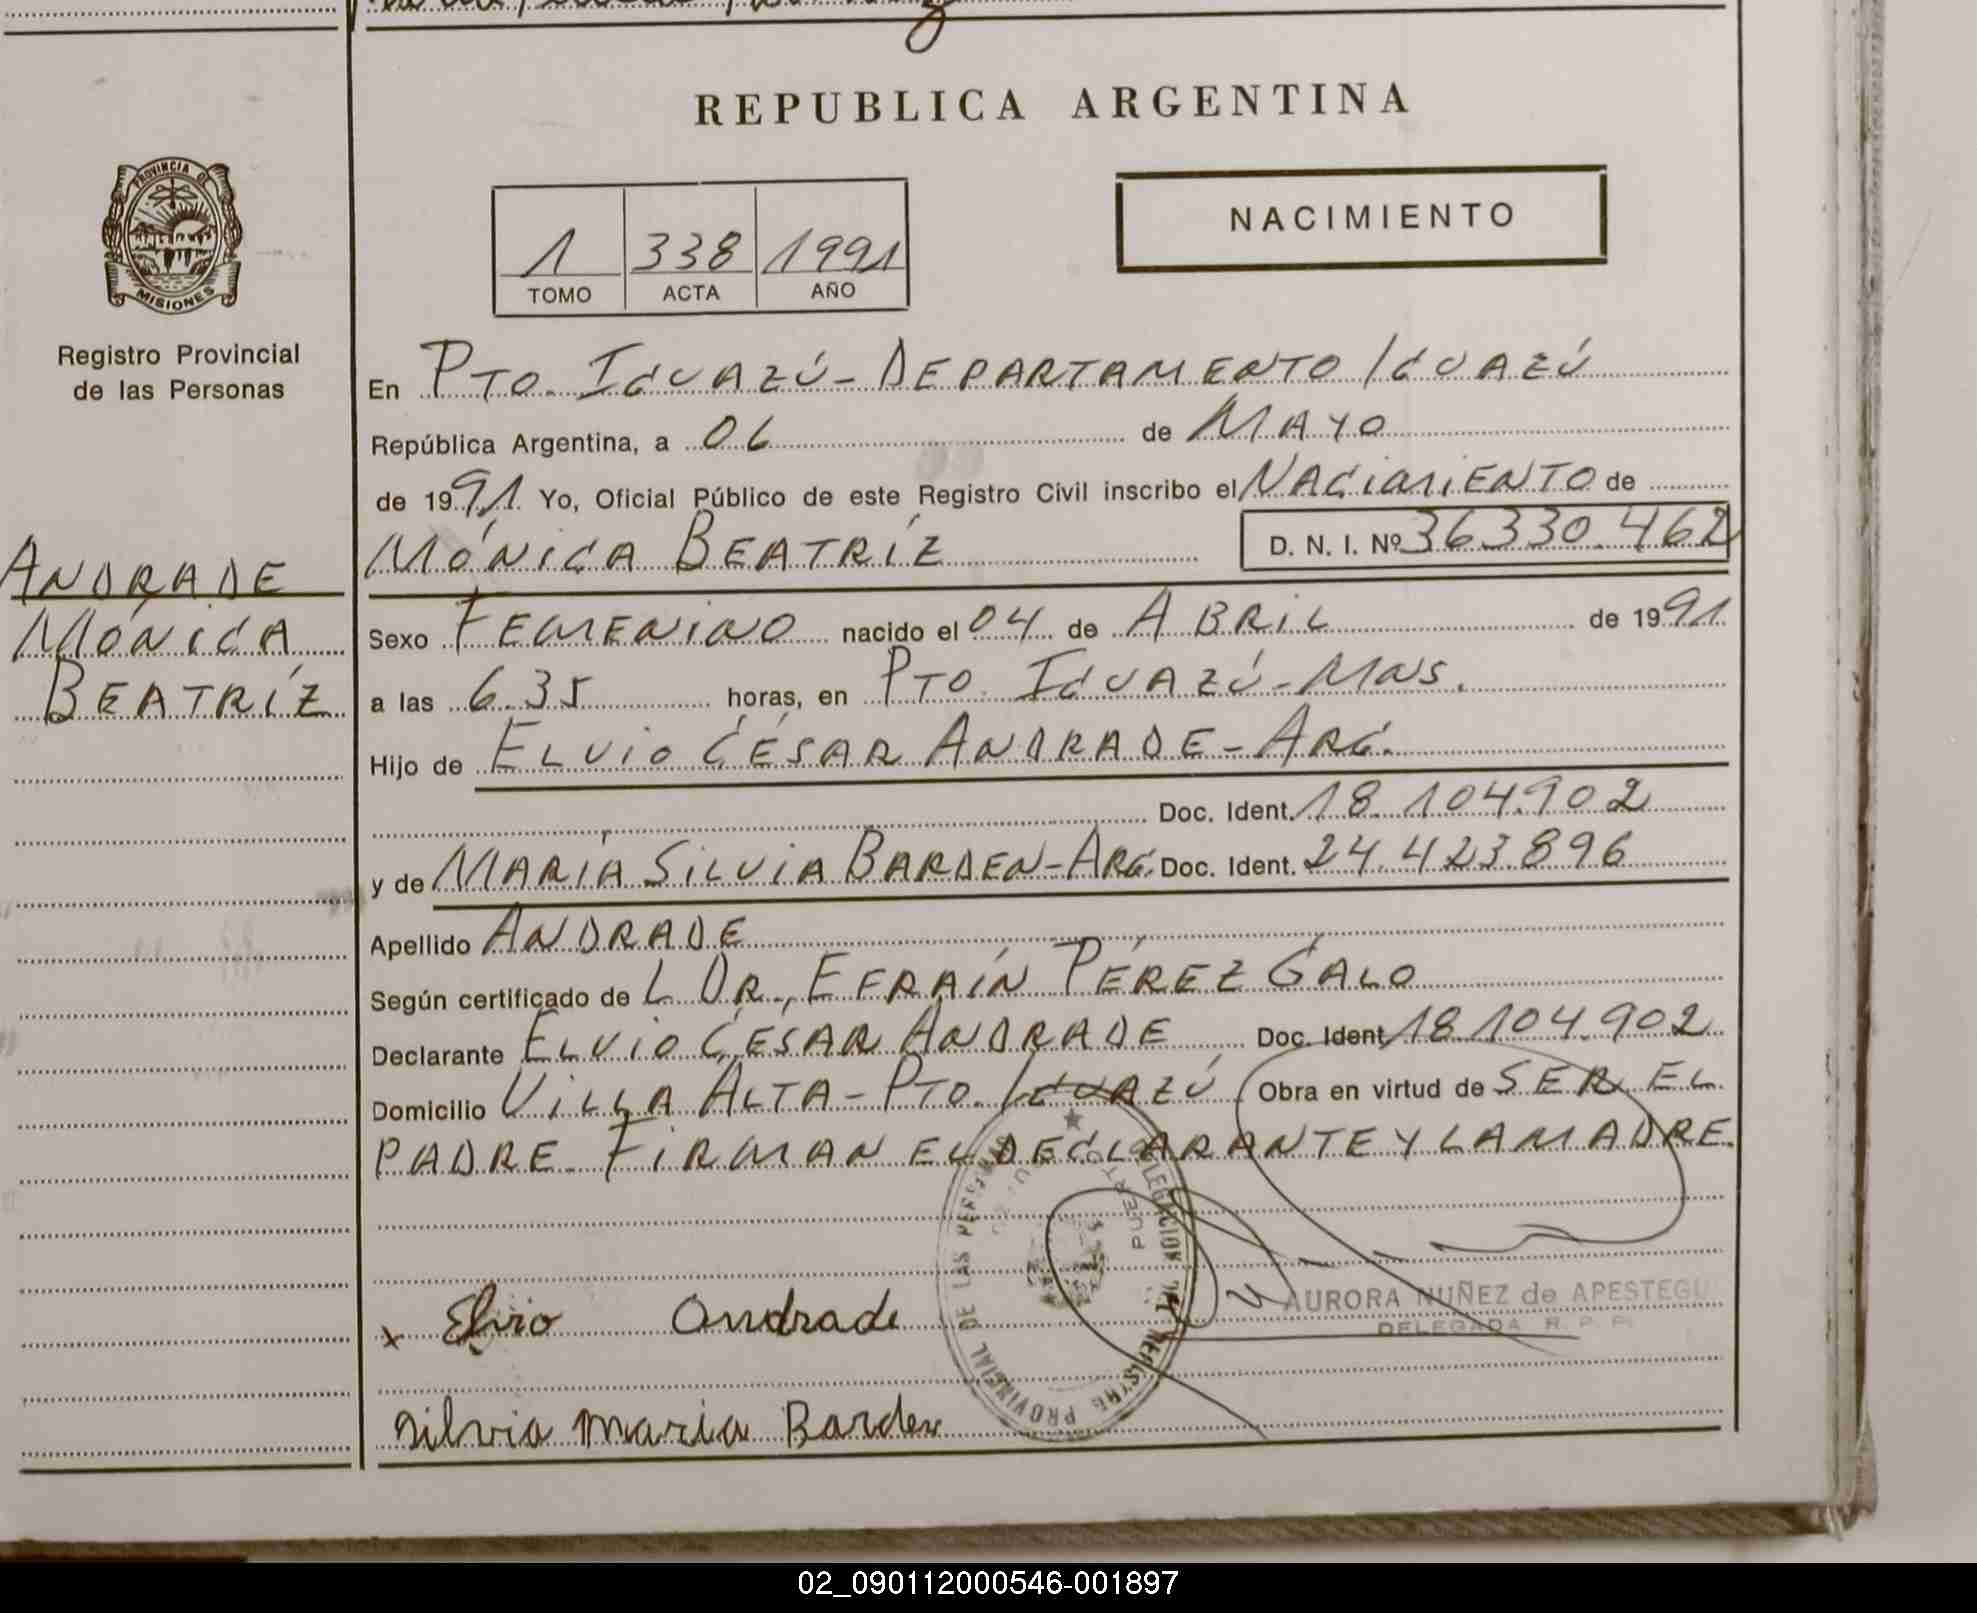 REPUBLICA ARGENTINA
PROVINCIA DE
MISIONES
Registro Provincial
de las Personas
1 338 1991
TOMO ACTA AÑO
NACIMIENTO
En PTO. IGUAZÚ - DEPARTAMENTO IGUAZÚ
República Argentina, a 06 de MAYO
de 1991 Yo, Oficial Público de este Registro Civil inscribo el NACIMIENTO de
MÓNICA BEATRÍZ D. N. I. Nº 36.330.462
ANDRADE
MÓNICA
BEATRÍZ
Sexo FEMENINO nacido el 04 de ABRIL de 1991
a las 6.35 horas, en PTO. IGUAZÚ - MNS.
Hijo de ELVIO CÉSAR ANDRADE - ARG.
Doc. Ident. 18.104.902
y de MARÍA SILVIA BARDEN - ARG. Doc. Ident. 24.423.896
Apellido ANDRADE
Según certificado de L DR. EFRAÍN PÉREZ GALO
Declarante ELVIO CÉSAR ANDRADE Doc. Ident 18.104.902
Domicilio VILLA ALTA - PTO. IGUAZÚ Obra en virtud de SER EL
PADRE. FIRMAN EL DECLARANTE Y LA MADRE.
AURORA NUÑEZ de APESTEGU
DELEGADA R. P. P.
x Elvio Andrade
PROVINCIAL DE LAS
Silvia Maria Barden
02_090112000546-001897